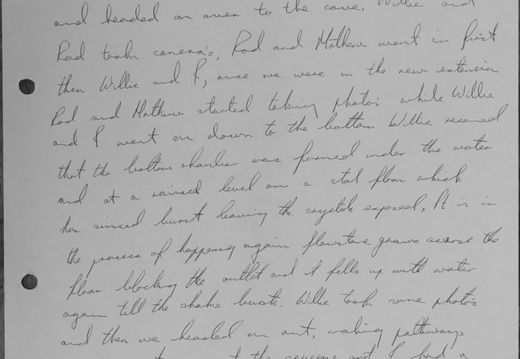 and headed on over to the cave. Willie and
Rod took camera's, Rod and Mathew went in first
then Willie and I, once we were in the new extension
Rod and Mathew started taking photos while Willie
and I went on down to the bottom Willie reconed
that the bottom chamber was formed under the water
and at a raised level on a stal floor which
has sinced burst leaving the crystals exposed, It is in
the process of happening again flowstone grows across the
floor blocking the outlet and it fills up with water
again till the choke bursts. Willie took some photos
and then we headed on out, making pathways
the squeeze and I had a